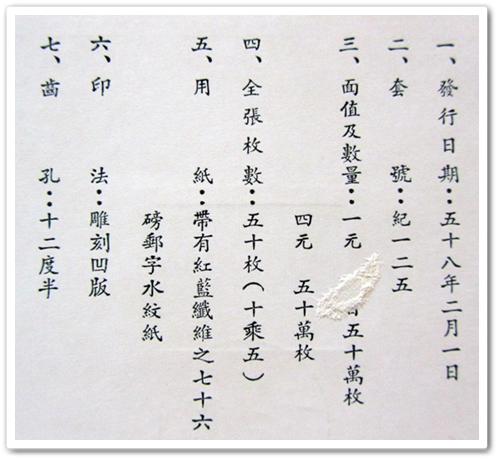 一、發行日期：五十八年二月一日
二、套　　號：紀一二五
三、面值及數量：一元　五十萬枚
四元　五十萬枚
四、全張枚數：五十枚（十乘五）
五、用　　紙：帶有紅藍纖維之七十六
磅郵字水紋紙
六、印　　法：雕刻凹版
七、齒　　孔：十二度半